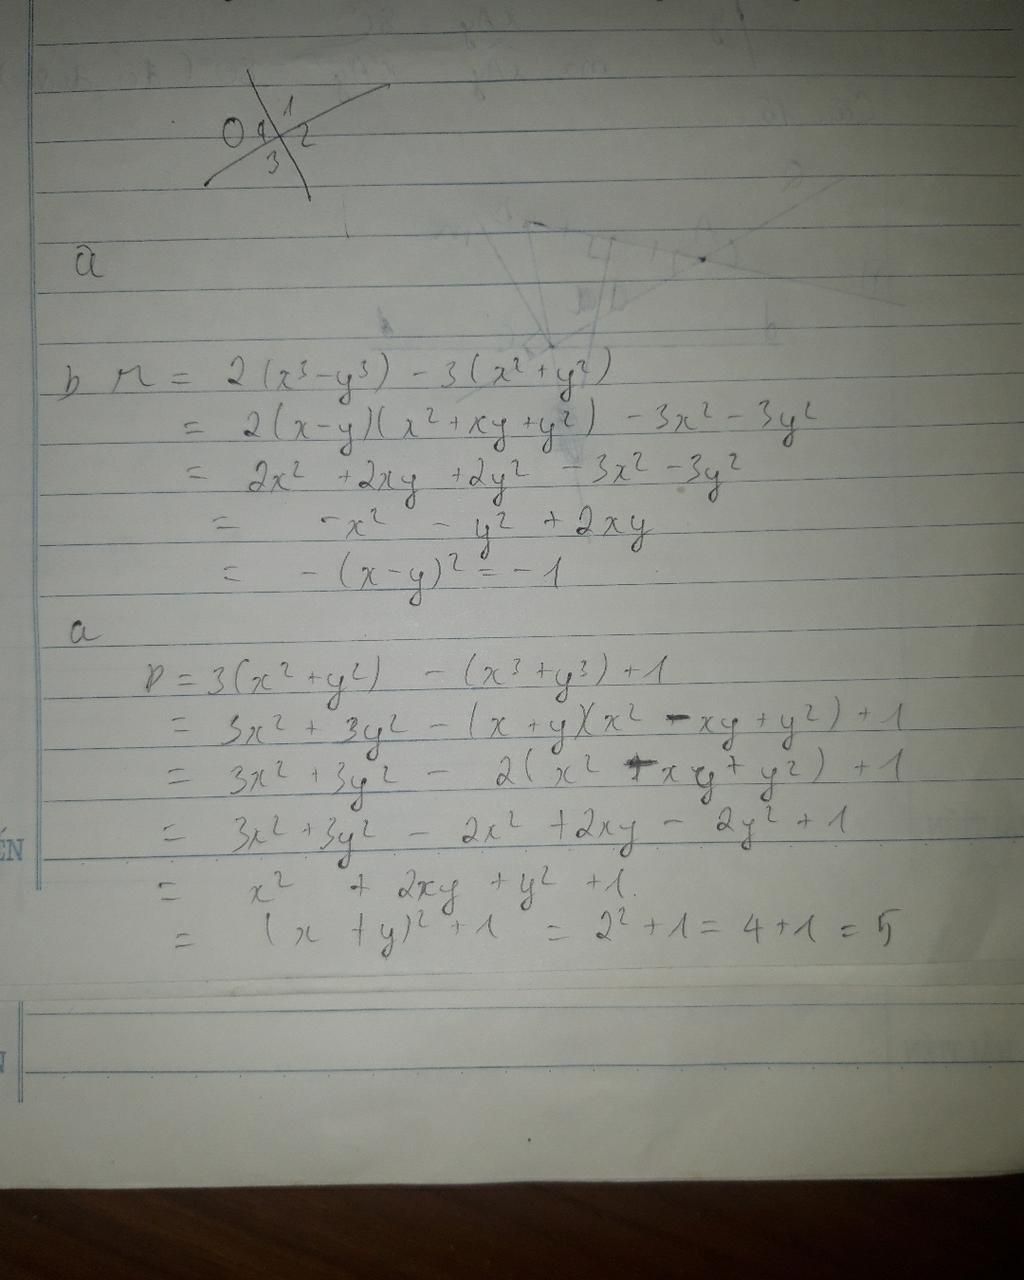 1
O 4 2
3
a
b M = 2(x³-y³) - 3(x²+y²)
= 2(x-y)(x²+xy+y²) - 3x² - 3y²
= 2x² + 2xy + 2y² - 3x² - 3y²
= -x² - y² + 2xy
= -(x-y)² = -1
a
P = 3(x²+y²) - (x³+y³) + 1
= 3x² + 3y² - (x+y)(x² - xy + y²) + 1
= 3x² + 3y² - 2(x² - xy + y²) + 1
= 3x² + 3y² - 2x² + 2xy - 2y² + 1
= x² + 2xy + y² + 1.
= (x+y)² + 1 = 2² + 1 = 4 + 1 = 5